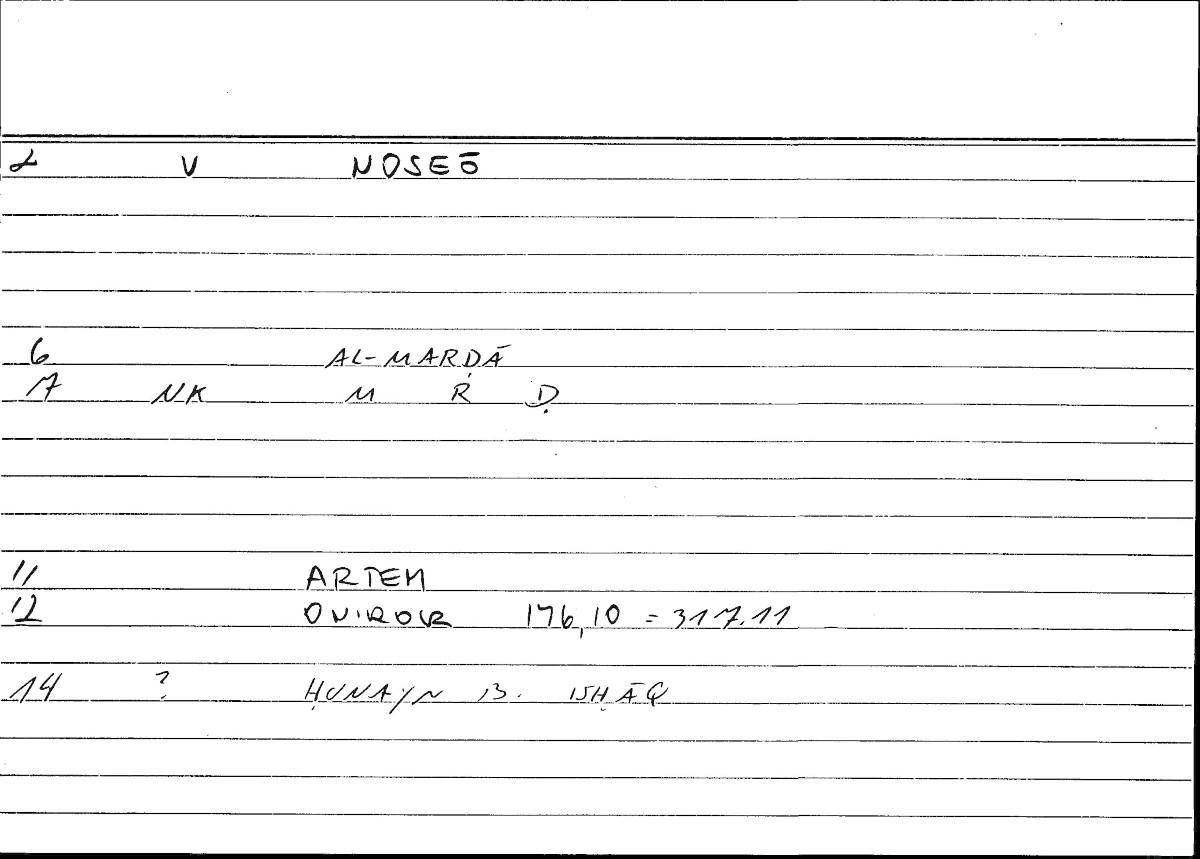 2 V NOSEŌ
6 AL-MARḌĀ
7 NK M R Ḍ
11 ARTEM
12 ONIROCR 176,10 = 317.11
14 ? ḤUNAYN B. ISḤĀQ